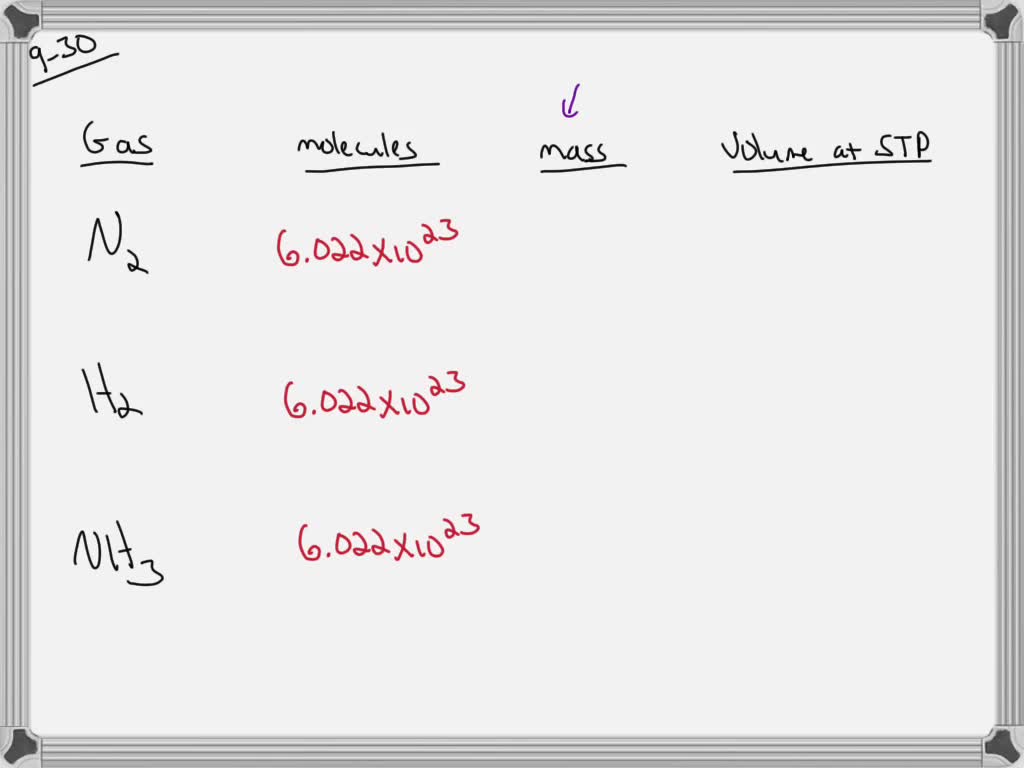 9-30
Gas molecules mass Volume at STP
N₂ 6.022×10²³
H₂ 6.022×10²³
NH₃ 6.022×10²³